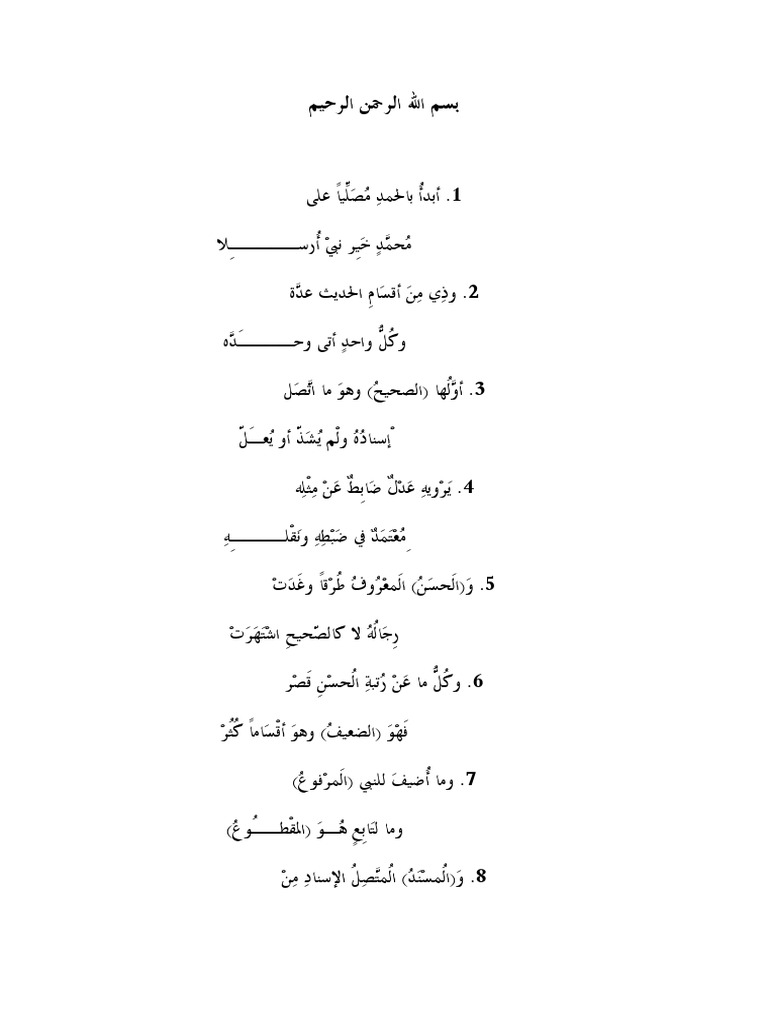 بسم الله الرحمن الرحيم
1. أبدأُ بالحمدِ مُصَلِّياً على
مُحمَّدٍ خَيِر نبيْ أُرســـــــــــــِلا
2. وذِي مِنَ أقسَامِ الحديث عدَّة
وكُلُّ واحدٍ أتى وحـــــــــــَدَّه
3. أوَّلُها (الصحيحُ) وهوَ ما اتَّصَل
ْإسنادُهُ ولْم يُشَذّ أو يُعــَلّ
4. يَرْويهِ عَدْلٌ ضَابِطٌ عَنْ مِثْلِه
ِمُعْتَمَدٌ في ضَبْطِهِ ونَقْلـــــــــــِهِ
5. وَ(الَحسَنُ) الَمعْرُوفُ طُرْقاً وغَدَتْ
رِجَالُهُ لا كالصّحيحِ اشْتَهَرَتْ
6. وكُلُّ ما عَنْ رُتبةِ الُحسْنِ قَصْر
فَهْوَ (الضعيفُ) وهوَ أقْسَاماً كُثُرْ
7. وما أُضيفَ للنبي (الَمرْفوعُ)
وما لتَابِعٍ هُـــوَ (المقْطـــــُوعُ)
8. وَ(الُمسْنَدُ) الُمتَّصِلُ الإسنادِ مِنْ